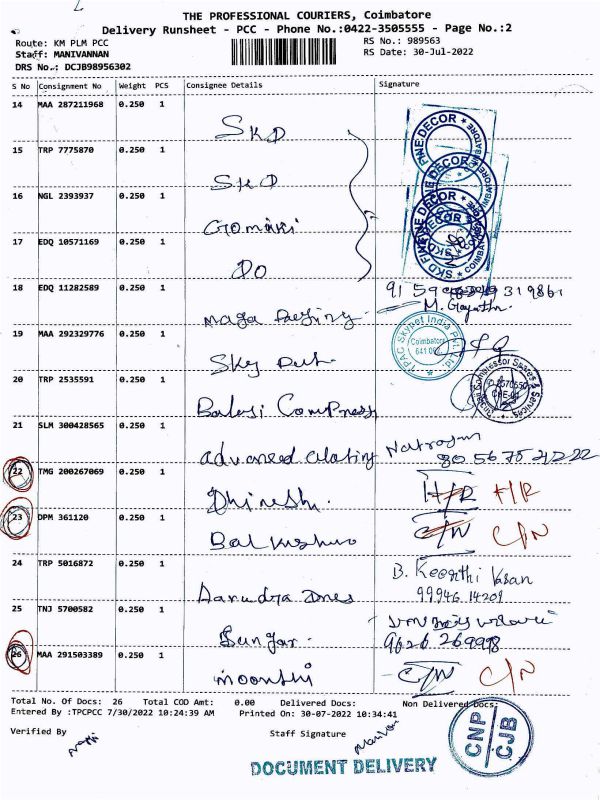 THE PROFESSIONAL COURIERS, Coimbatore
Delivery Runsheet - PCC - Phone No.:0422-3505555 - Page No.:2
Route: KM PLM PCC
RS No.: 989563
Staff: MANIVANNAN
RS Date: 30-Jul-2022
DRS No.: DCJB98956302
S No Consignment No Weight PCS Consignee Details Signature
14 MAA 287211968 0.250 1 SKD
15 TRP 7775870 0.250 1 SKD
16 NGL 2393937 0.250 1
17 EDQ 10571169 0.250 1 DO
SKD FINE DECOR * COIMBATORE
18 EDQ 11282589 0.250 1 maga
M. Gayathri
19 MAA 292329776 0.250 1 Sky
TPAC Skypet India Pvt. Ltd.
Coimbatore
20 TRP 2535591 0.250 1 Balaji Compress
Compressor Spares & Services
21 SLM 300428565 0.250 1 advanced
22 TMG 200267069 0.250 1 Dhinesh. H/R H/R
23 DPM 361120 0.250 1 C/N C/N
24 TRP 5016872 0.250 1
B. Keerthi Vasan
99946 14209
25 TNJ 5700582 0.250 1
9626 269998
26 MAA 291503389 0.250 1 C/N C/N
Total No. Of Docs: 26 Total COD Amt: 0.00 Delivered Docs: Non Delivered Docs:
Entered By :TPCPCC 7/30/2022 10:24:39 AM Printed On: 30-07-2022 10:34:41
Verified By Staff Signature
DOCUMENT DELIVERY
CNP
CJB